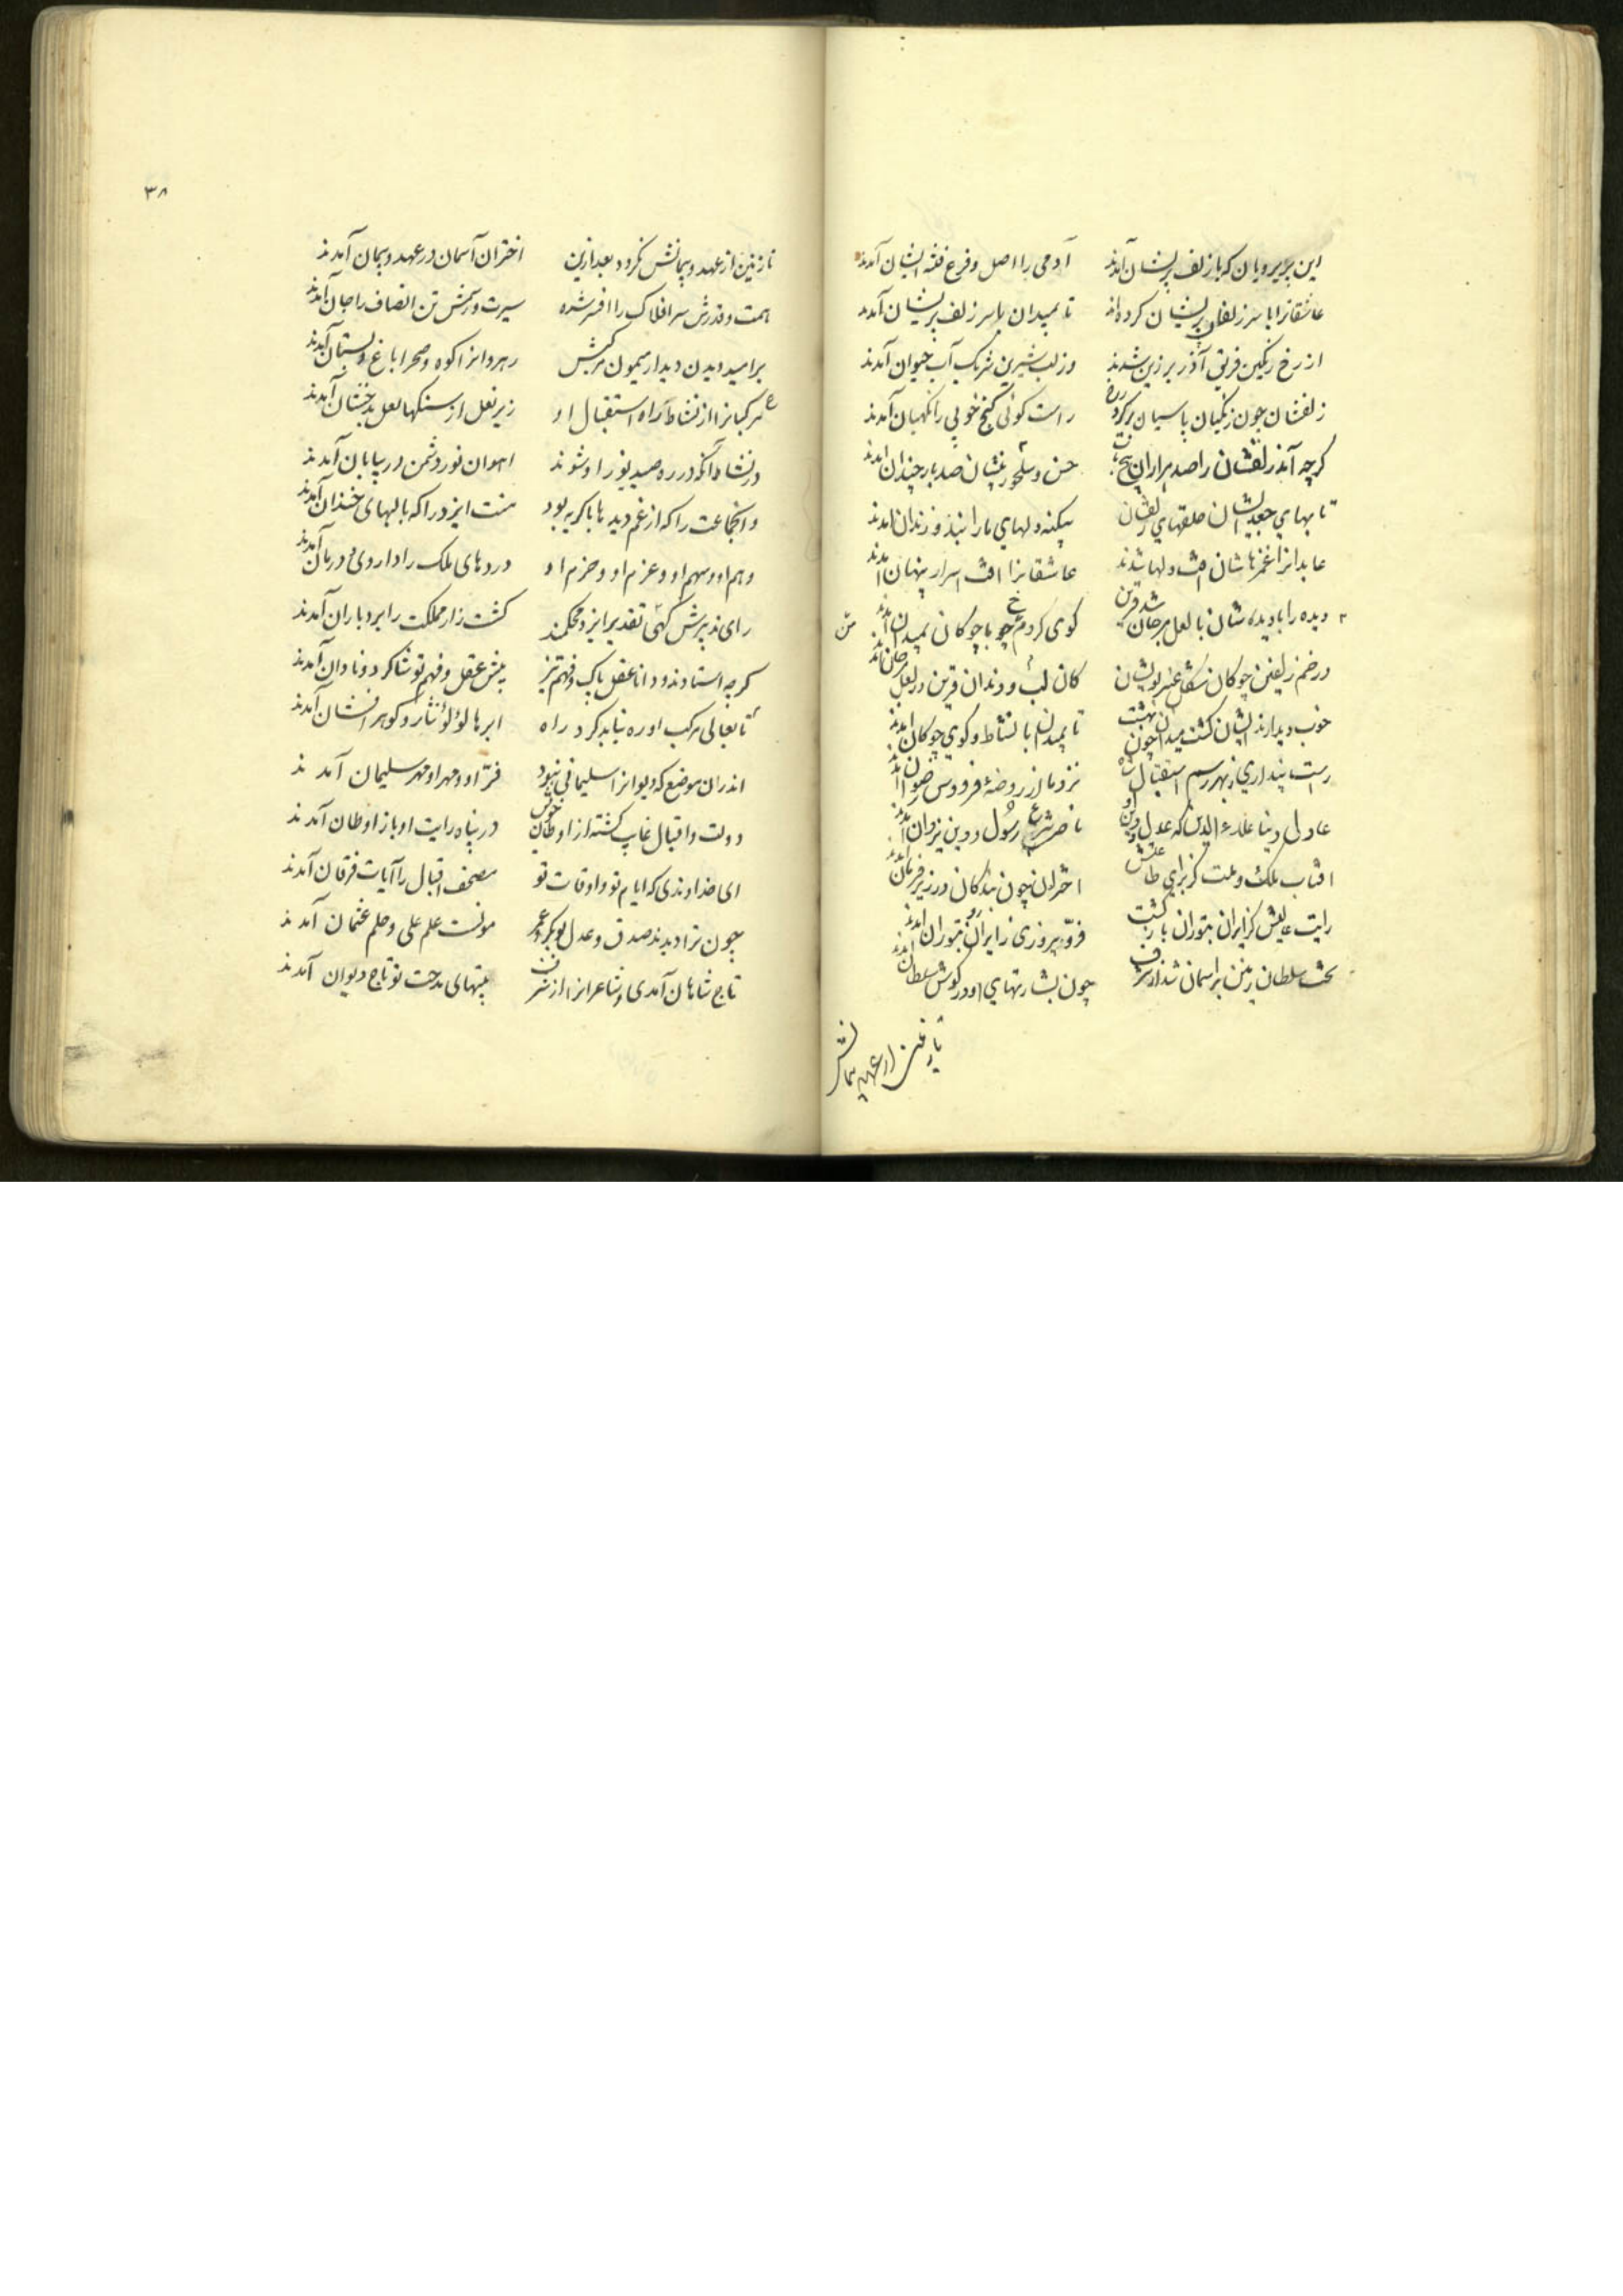 این پریرویان که با زلف پریشان آمدند آدمی را اصل و فرع فتنه ایشان آمدند
عاشقانرا با سر زلف پریشان کرده‌اند تا بمیدان با سر زلف پریشان آمدند
از رخ رنگین فریق آذر برزین شدند وز لب شیرین شریک آب حیوان آمدند
زلفشان چون زنگیان پاسبان بر گرد رخ راست گوئی گنج خوبی را نگهبان آمدند
کرچه آمد زلفشان را صد هزاران پیچ و تاب حسن و صد بار چندان آمدند
تابهای جعد ایشان حلقهای زلفشان بیکنه دلهای ما را بند و زندان آمدند
عابدانرا غمزهاشان دلها شدند عاشقانرا اسرار پنهان آمدند
دیده را با دیدهٔ شان با لعل مرجان شد قرین کوی کردم چو با چوکان بمیدان آمدند
در خم زلفین چوکان شکل عنبر بویشان کان لب و دندان قرین در لعل مرجان آمدند
خوب دیدارند ایشان کشت میدان چون بهشت تا بمیدان با نشاط و کوی چوکان آمدند
راست پنداری ز بهر رسم استقبال شاه نزد ما از روضهٔ فردوس رضوان آمدند
عادلی دنیا علاء الدین که عدل و دین او ناصر شرع رسول و دین یزدان آمدند
افتاب ملک و ملت کز برای طاعتش اختران چون بندکان در زیر فرمان آمدند
رایت عالیش کز ایران بتوران بازکشت فرّ و پیروزی ز ایران زو بتوران آمدند
تخت سلطان زمین بر اسمان شد از شرف چون بشارتهای او در کوش سلطان آمدند
نازنین از عهد و پیمانش
۳۸
نازنین از عهد و پیمانش نکردد بعد ازین اختران آسمان در عهد و پیمان آمدند
همت و قدرش سر افلاک را افسر شده سیرت و رسمش تن انصاف را جان آمدند
بر امید دیدن دیدار میمون مرکبش رهروانرا کوه و صحرا باغ و بستان آمدند
مرکبانرا از نشاط راه استقبال او زیر نعل از سنکها لعل بدخشان آمدند
در نشاط آنکه در ره صید یوز او شوند اهوان نوروشمن در بیابان آمدند
و انجماعت را که از غم دیدها با کریه بود منت ایزد را که با لبهای خندان آمدند
وهم او و سهم او و عزم او و حزم او دردهای ملک را داروی و درمان آمدند
رای تدبیرش کهی تقدیر ایزد محکمند کشت زار مملکت را ابر و باران آمدند
کرچه استادند و دانا عقل پاک و فهم تیز پیش عقل و فهم تو شاکرد و نادان آمدند
تا تعالی مرکب او ره نباید کرد راه ابرها لؤلؤ نثار و کوهر افشان آمدند
اندران موضع که دیوانرا سلیمانی نبود فرّ او و مهر او مهر سلیمان آمدند
دولت و اقبال غایب کشته از اوطان خویش در پناه رایت او باز اوطان آمدند
ای خداوندی که ایام تو و اوقات تو مصحف اقبال را آیات فرقان آمدند
چون ترا دیدند صدق و عدل بوبکر و عمر مونست علم علی و حلم عثمان آمدند
تاج شاهان آمدی و شاعرانرا از شرف بیتهای مدحت تو تاج دیوان آمدند